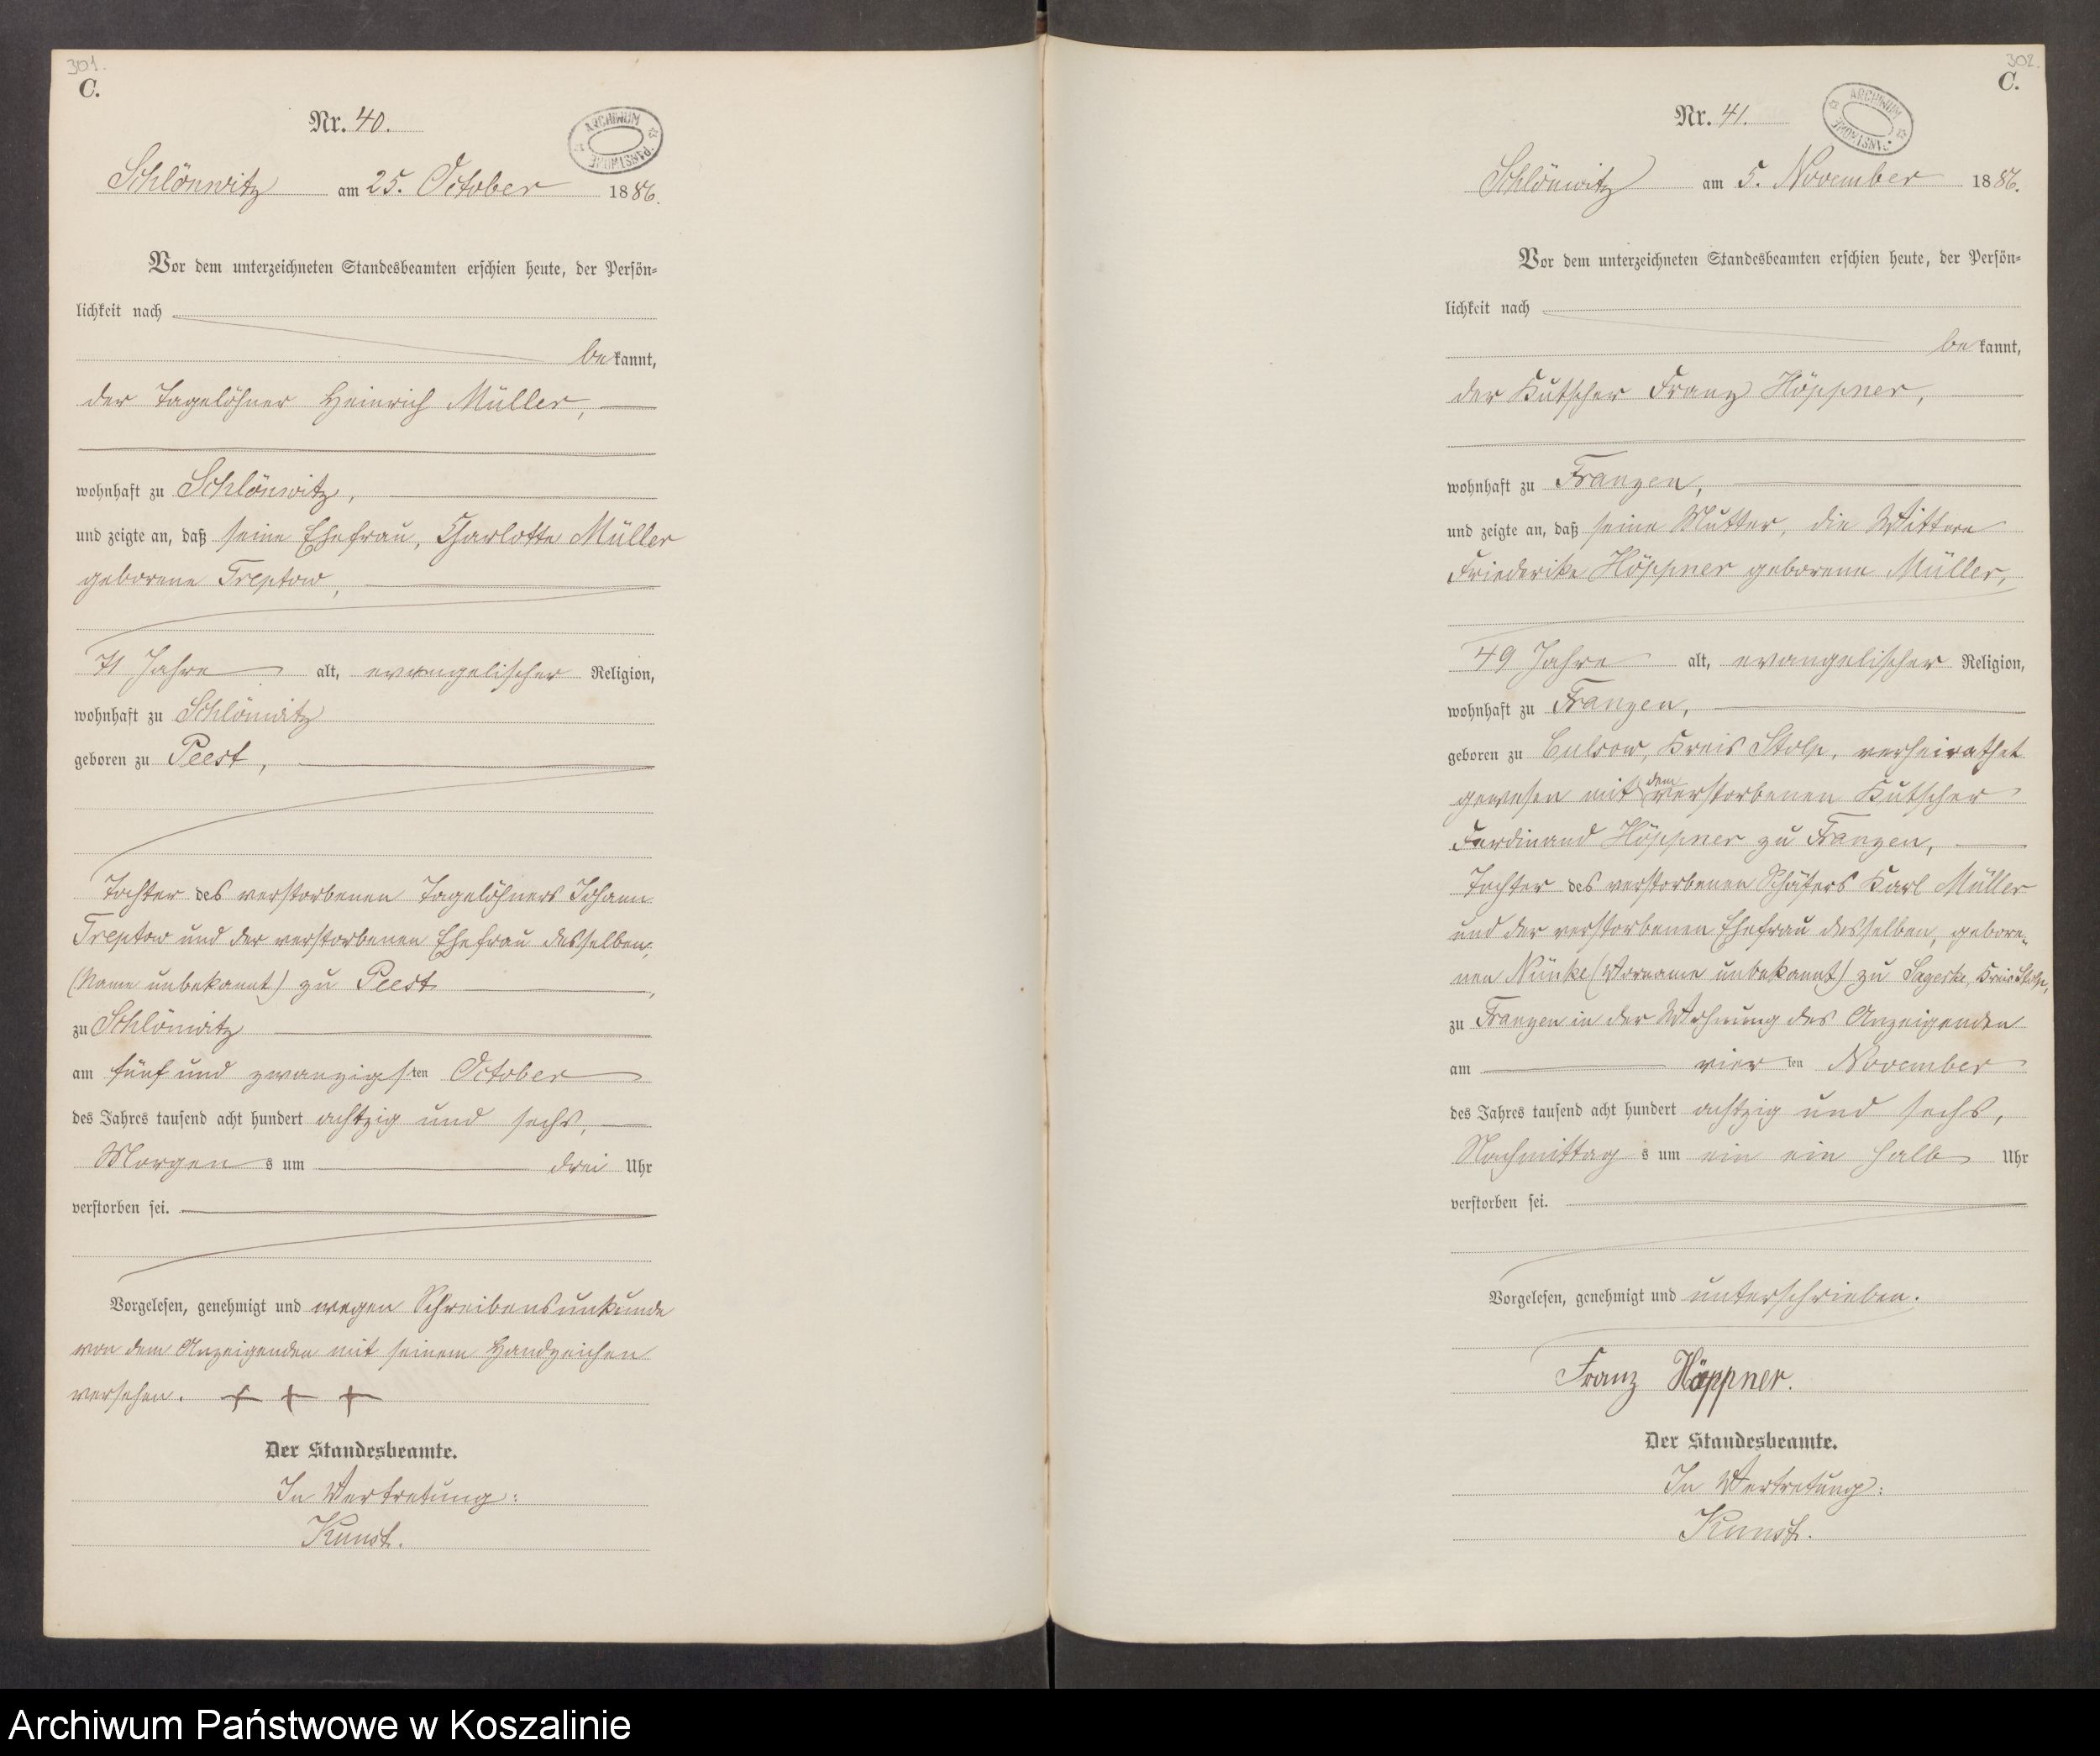 301.
C.
Nr. 40.
ARCHIWUM PAŃSTWOWE
Schlönwitz am 25. October 1886.
Vor dem unterzeichneten Standesbeamten erschien heute, der Persön-
lichkeit nach
bekannt,
der Tagelöhner Heinrich Müller,
wohnhaft zu Schlönwitz,
und zeigte an, daß seine Ehefrau, Charlotte Müller
geborene Treptow,
71 Jahre alt, evangelischer Religion,
wohnhaft zu Schlönwitz
geboren zu Peest,
Tochter des verstorbenen Tagelöhners Johann
Treptow und der verstorbenen Ehefrau desselben,
(Name unbekannt) zu Peest,
zu Schlönwitz
am fünf und zwanzigsten October
des Jahres tausend acht hundert achtzig und sechs,
Morgens um drei Uhr
verstorben sei.
Vorgelesen, genehmigt und wegen Schreibensunkunde
von dem Anzeigenden mit seinem Handzeichen
versehen. + + +
Der Standesbeamte.
In Vertretung:
Kunst.
302.
C.
Nr. 41.
ARCHIWUM PAŃSTWOWE
Schlönwitz am 5. November 1886.
Vor dem unterzeichneten Standesbeamten erschien heute, der Persön-
lichkeit nach
bekannt,
der Kutscher Franz Höppner,
wohnhaft zu Franzen,
und zeigte an, daß seine Mutter, die Wittwe
Friederike Höppner geborene Müller,
49 Jahre alt, evangelischer Religion,
wohnhaft zu Franzen,
geboren zu Kreis Stolp, verheirathet
gewesen mit dem verstorbenen Kutscher
Ferdinand Höppner zu Franzen,
Tochter des verstorbenen Schäfers Karl Müller
und der verstorbenen Ehefrau desselben, gebore-
nen (Vorname unbekannt) zu Sageske, Kreis Stolp,
zu Franzen in der Wohnung des Anzeigenden
am vierten November
des Jahres tausend acht hundert achtzig und sechs,
Nachmittags um ein ein halb Uhr
verstorben sei.
Vorgelesen, genehmigt und unterschrieben.
Franz Höppner.
Der Standesbeamte.
In Vertretung:
Kunst.
Archiwum Państwowe w Koszalinie